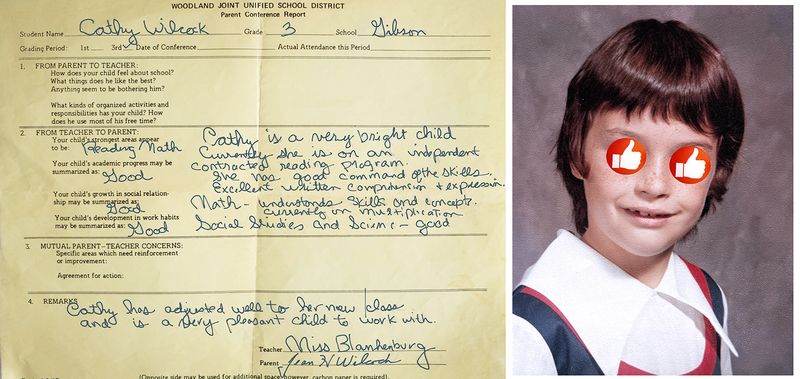 WOODLAND JOINT UNIFIED SCHOOL DISTRICT
Parent Conference Report
Student Name Cathy Wilcock Grade 3 School Gibson
Grading Period: 1st 3rd Date of Conference Actual Attendance this Period
1. FROM PARENT TO TEACHER:
How does your child feel about school?
What things does he like the best?
Anything seem to be bothering him?
What kinds of organized activities and
responsibilities has your child? How
does he use most of his free time?
2. FROM TEACHER TO PARENT:
Your child's strongest areas appear
to be: Reading Math
Your child's academic progress may be
summarized as: Good
Your child's growth in social relation-
ship may be summarized as: Good
Your child's development in work habits
may be summarized as: Good
Cathy is a very bright child
Currently she is on an independent
contracted reading program.
She has good command of the skills.
Excellent written comprehension + expression.
Math - understands skills and concepts.
currently on multiplication
Social Studies and Science - good
3. MUTUAL PARENT-TEACHER CONCERNS:
Specific areas which need reinforcement
or improvement:
Agreement for action:
4. REMARKS
Cathy has adjusted well to her new class
and is a very pleasant child to work with.
Teacher Miss Blankenburg
Parent Jean N Wilcock
(Opposite side may be used for additional space however, carbon paper is required).